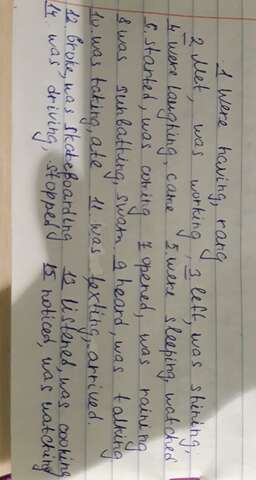 1 were having, rang
2 Met, was working, 3 left, was shining;
4 were laughing, came 5. were sleeping, watched
6. started, was 7 opened, was raining
8 was sunbathing, swam 9 heard, was talking
10. was taking, ate 11. was texting, arrived.
12 broke, was skateboarding 13 listened, was cooking
14 was driving, stopped 15 noticed, was watching